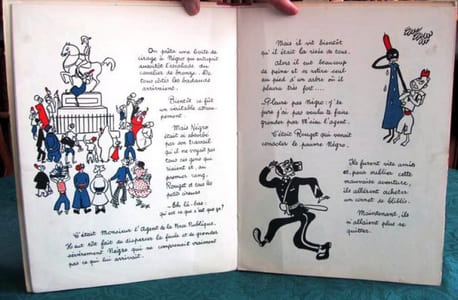 On prêta une boîte de
cirage à Négro qui entreprit
aussitôt l'escalade du
cavalier de bronze. De
tous côtés les badauds
arrivaient.
Bientôt ce fut
un véritable attroupement.
Mais Négro
était si absorbé
par son travail
qu'il ne voyait pas
tous ces gens qui
riaient et au
premier rang,
Rouget et tous les
petits cireurs
- Oh là-bas;
qu'est ce que c'est que ça?
C'était Monsieur l'Agent de la Paix Publique.
Il eut vite fait de disperser la foule et de gronder
sévèrement Négro qui ne comprenait vraiment
pas ce qui lui arrivait.
Mais il vit bientôt
qu'il était la risée de tous.
Alors il eut beaucoup
de peine et se retira seul
au pied d'un arbre où il
pleura très fort....
- Pleure pas Négro; j'te
jure j'ai pas voulu te faire
gronder par M'sieu l'agent.
C'était Rouget qui venait
consoler le pauvre Négro.
Ils furent vite amis
et, pour oublier cette
mauvaise aventure,
ils allèrent acheter
un cornet de bliblis.
Maintenant, ils
n'allaient plus se
quitter.